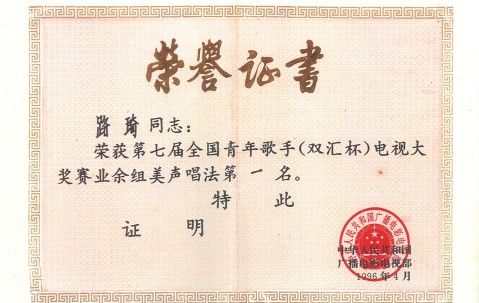 荣誉证书
路琦同志:
荣获第七届全国青年歌手(双汇杯)电视大
奖赛业余组美声唱法第一名。
特此
证明
中华人民共和国广播电影电视部
中华人民共和国
广播电影电视部
1996年4月